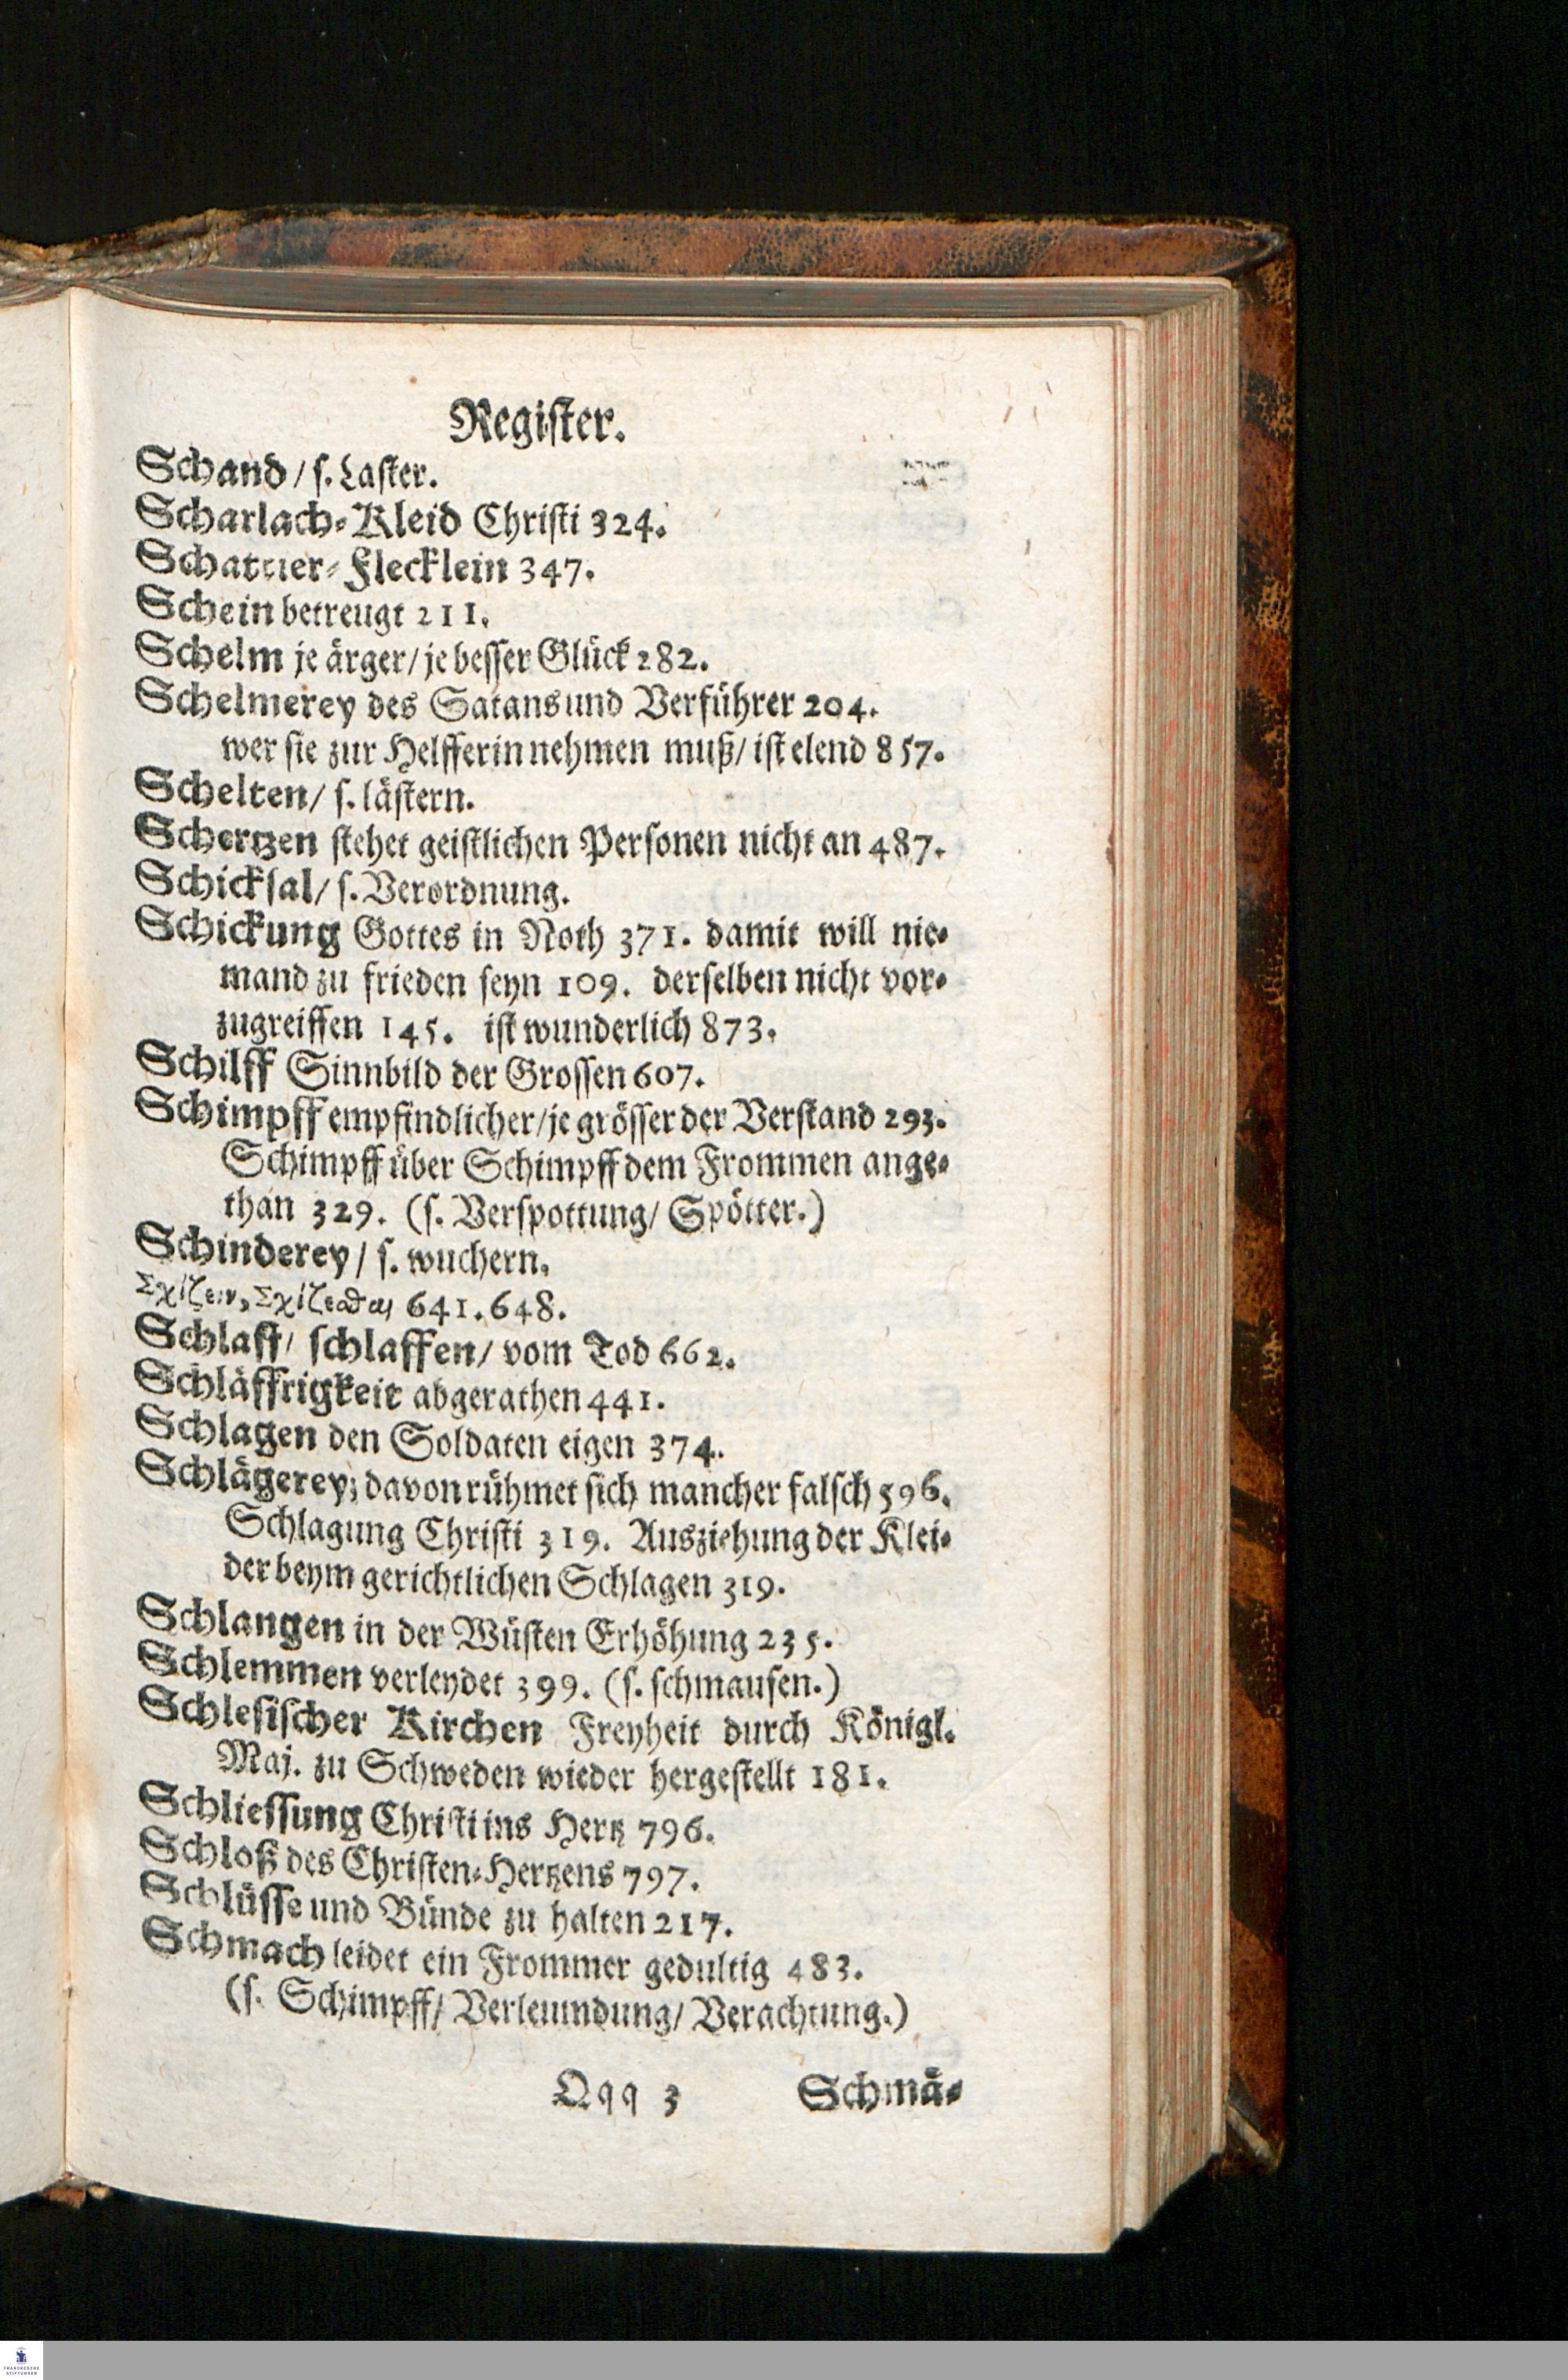 Register.
Schand / s. Laster.
Scharlach-Kleid Christi 324.
Schatter-Flecklein 347.
Schein betreugt 211.
Schelm je ärger / je besser Glück 282.
Schelmerey des Satans und Verführer 204.
wer sie zur Helfferin nehmen muß / ist elend 857.
Schelten / s. lästern.
Schertzen stehet geistlichen Personen nicht an 487.
Schicksal / s. Verordnung.
Schickung Gottes in Noth 371. damit will nie-
mand zu frieden seyn 109. derselben nicht vor-
zugreiffen 145. ist wunderlich 873.
Schilff Sinnbild der Grossen 607.
Schimpff empfindlicher / je grösser der Verstand 293.
Schimpff über Schimpff dem Frommen ange-
than 329. (s. Verspottung / Spötter.)
Schinderey / s. wuchern.
Σχίζειν, Σχίζεσθαι 641. 648.
Schlaff / schlaffen / vom Tod 662.
Schläffrigkeit abgerathen 441.
Schlagen den Soldaten eigen 374.
Schlägerey; davon rühmet sich mancher falsch 596.
Schlagung Christi 319. Ausziehung der Klei-
der beym gerichtlichen Schlagen 319.
Schlangen in der Wüsten Erhöhung 235.
Schlemmen verleydet 399. (s. schmausen.)
Schlesischer Kirchen Freyheit durch Königl.
Maj. zu Schweden wieder hergestellt 181.
Schliessung Christi ins Hertz 796.
Schloß des Christen-Hertzens 797.
Schlüsse und Bünde zu halten 217.
Schmach leidet ein Frommer gedultig 483.
(s. Schimpff / Verleumdung / Verachtung.)
Qqq 3 Schmä-
FRANCKESCHE
STIFTUNGEN